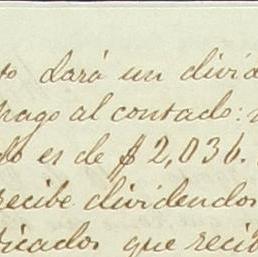 to dará un divid
pago al contado:
do es de $2,036.
recibe dividendos
ficados que recib